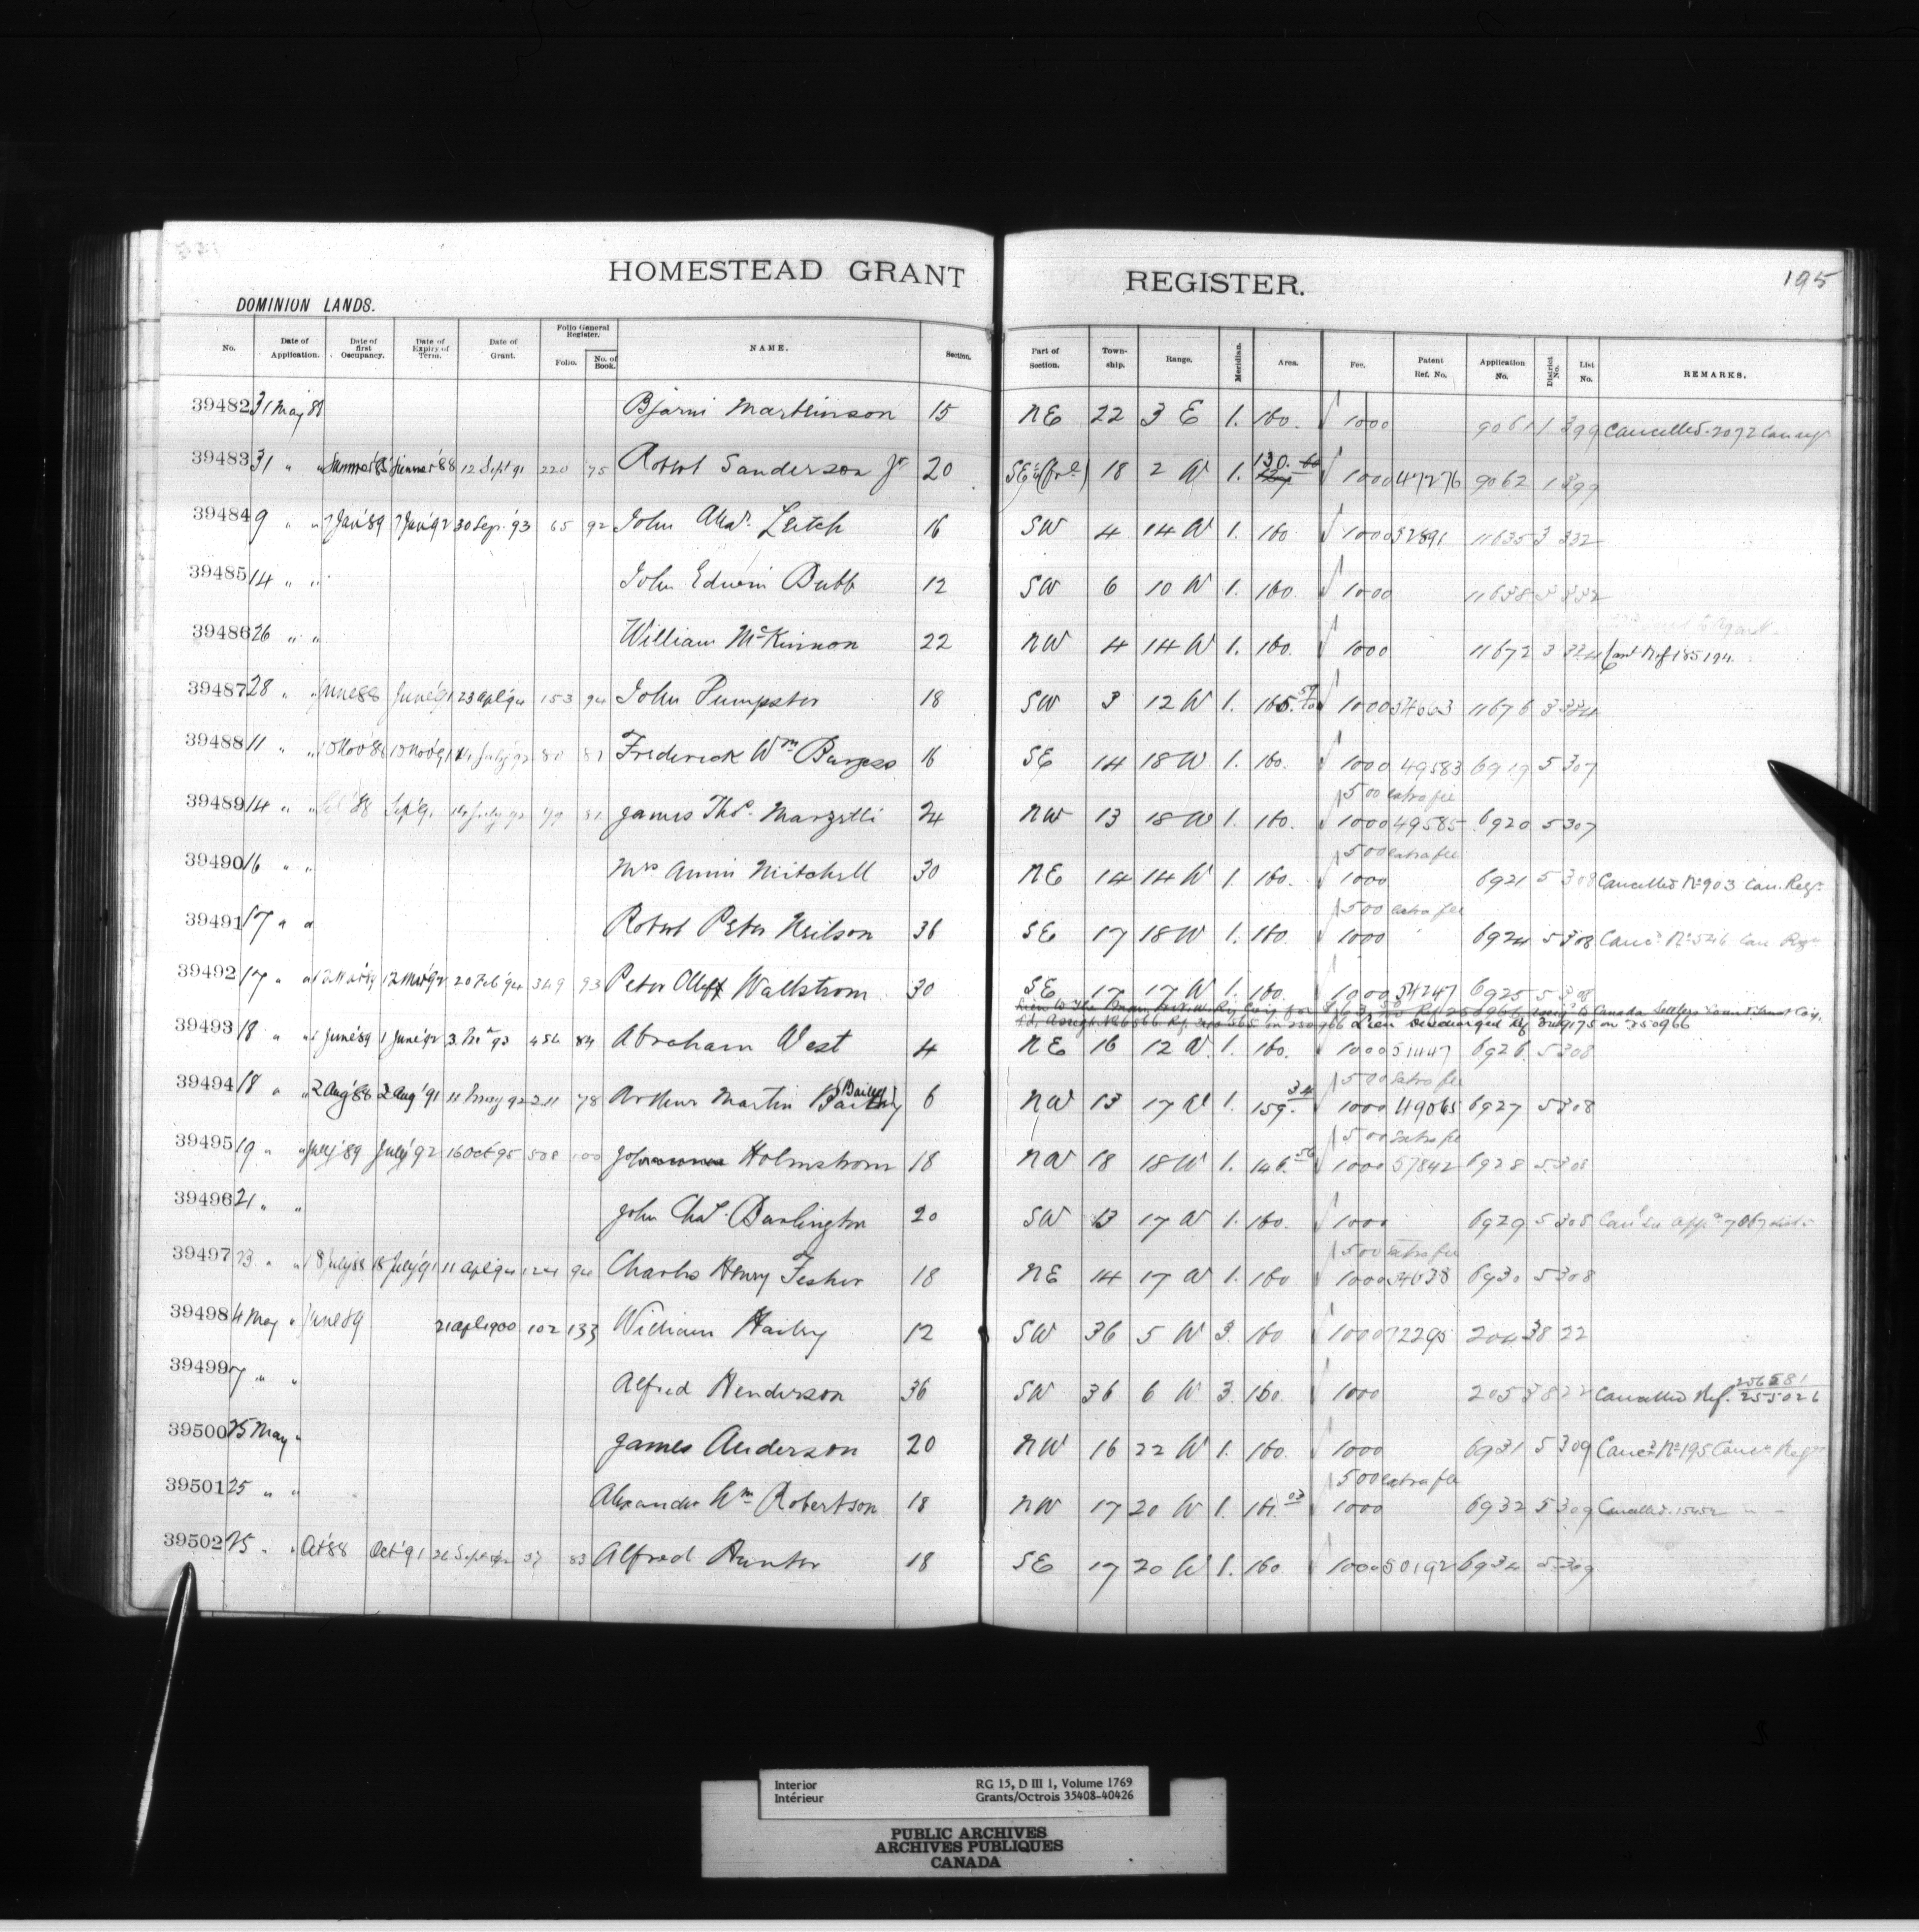 HOMESTEAD GRANT REGISTER. 195
DOMINION LANDS.
No. Date of Application. Date of first Occupancy. Date of Expiry of Term. Date of Grant. Folio General Register. Folio. No. of Book. NAME. Section. Part of Section. Town-ship. Range. Meridian. Area. Fee. Patent Ref. No. Application No. District No. List No. REMARKS.
39482 31 May 89 Bjarni Martinson 15 NE 22 3 E 1. 160. 1000 9061 1 399 Cancelled 2072
39483 31 " " 12 Sept 91 220 75 Robert Sanderson Jr 20 SE 18 2 W 1. 130. 1000 47276 9062 1 399
39484 9 " " 7 Jan'89 7 Jan'92 30 Sep. '93 65 92 John Alexr. Leitch 16 SW 4 14 W 1. 160 1000 52891 11635 3 332
39485 14 " " John Edwin Bubb 12 SW 6 10 W 1. 160. 1000 11638 3 332
39486 26 " " William McKinnon 22 NW 4 14 W 1. 160. 1000 11672 3 334 Ref 185194
39487 28 " " June 88 June '91 23 apl '94 153 94 John Pumpster 18 SW 3 12 W 1. 1000 54663 11676 3 334
39488 11 " " 10 Nov'88 10 Nov'91 14 July '92 80 81 Frederick Wm Burgess 16 SE 14 18 W 1. 160. 1000 49583 6919 5 307
500 extra fee
39489 14 " " Sep '91 14 July 92 79 81 James Thos. Marzetti 24 NW 13 18 W 1. 160. 1000 49585 6920 5 307
500 extra fee
39490 16 " " Mrs Annie Mitchell 30 NE 14 14 W 1. 160. 1000 6921 5 308 Cancelled No 903 Can. Regr.
500 extra fee
39491 17 " " Robert Peter Neilson 36 SE 17 18 W 1. 160. 1000 6924 5 308 Canc'd No 526 Can Regr
39492 17 " " 12 Mar'89 12 Mar'92 20 Feb '94 349 93 Peter Olloff Wallstrom 30 SE 17 17 W 1. 160. 1000 54247 6925 5 308
Lien discharged Ref 349175 on 250966
39493 18 " " 1 June '89 1 June '92 454 84 Abraham West 4 NE 16 12 W. 1. 160. 1000 51447 6926 5 308
500 extra fee
39494 18 " " 2 Aug '88 2 Aug '91 11 May 92 211 78 Arthur Martin (Bailey) 6 NW 13 17 W 1. 159.34 1000 49065 6927 5 308
500 extra fee
39495 19 " " July '89 July '92 16 Oct 95 508 100 Holmstrom 18 NW 18 18 W 1. 146.50 1000 57842 6928 5 308
39496 21 " " John Chas. Barlington 20 SW 13 17 W 1. 160. 1000 6929 5 308
500 extra fee
39497 23 " " 18 July 88 18 July '91 11 apl 94 124 94 Charles Henry Fisher 18 NE 14 17 W 1. 160 1000 54638 6930 5 308
39498 4 May " June 89 21 apl 1900 102 133 William Hailey 12 SW 36 5 W 3. 160 1000 72295 204 38 22
39499 7 " " Alfred Henderson 36 SW 36 6 W 3. 160. 1000 205 38 22 Cancelled Ref. 255026
39500 25 May " James Anderson 20 NW 16 22 W 1. 160. 1000 6931 5 309 Canc'd No 195 Canc'n Regr
500 extra fee
39501 25 " " Alexander Wm Robertson 18 NW 17 20 W 1. 161.03 1000 6932 5 309 Cancelled 15452 " "
39502 25 " " Oct '88 Oct '91 37 83 Alfred Hunter 18 SE 17 20 W 1. 160 1000 50192 6934 5 309
Interior RG 15, D III 1, Volume 1769
Intérieur Grants/Octrois 35408-40426
PUBLIC ARCHIVES
ARCHIVES PUBLIQUES
CANADA